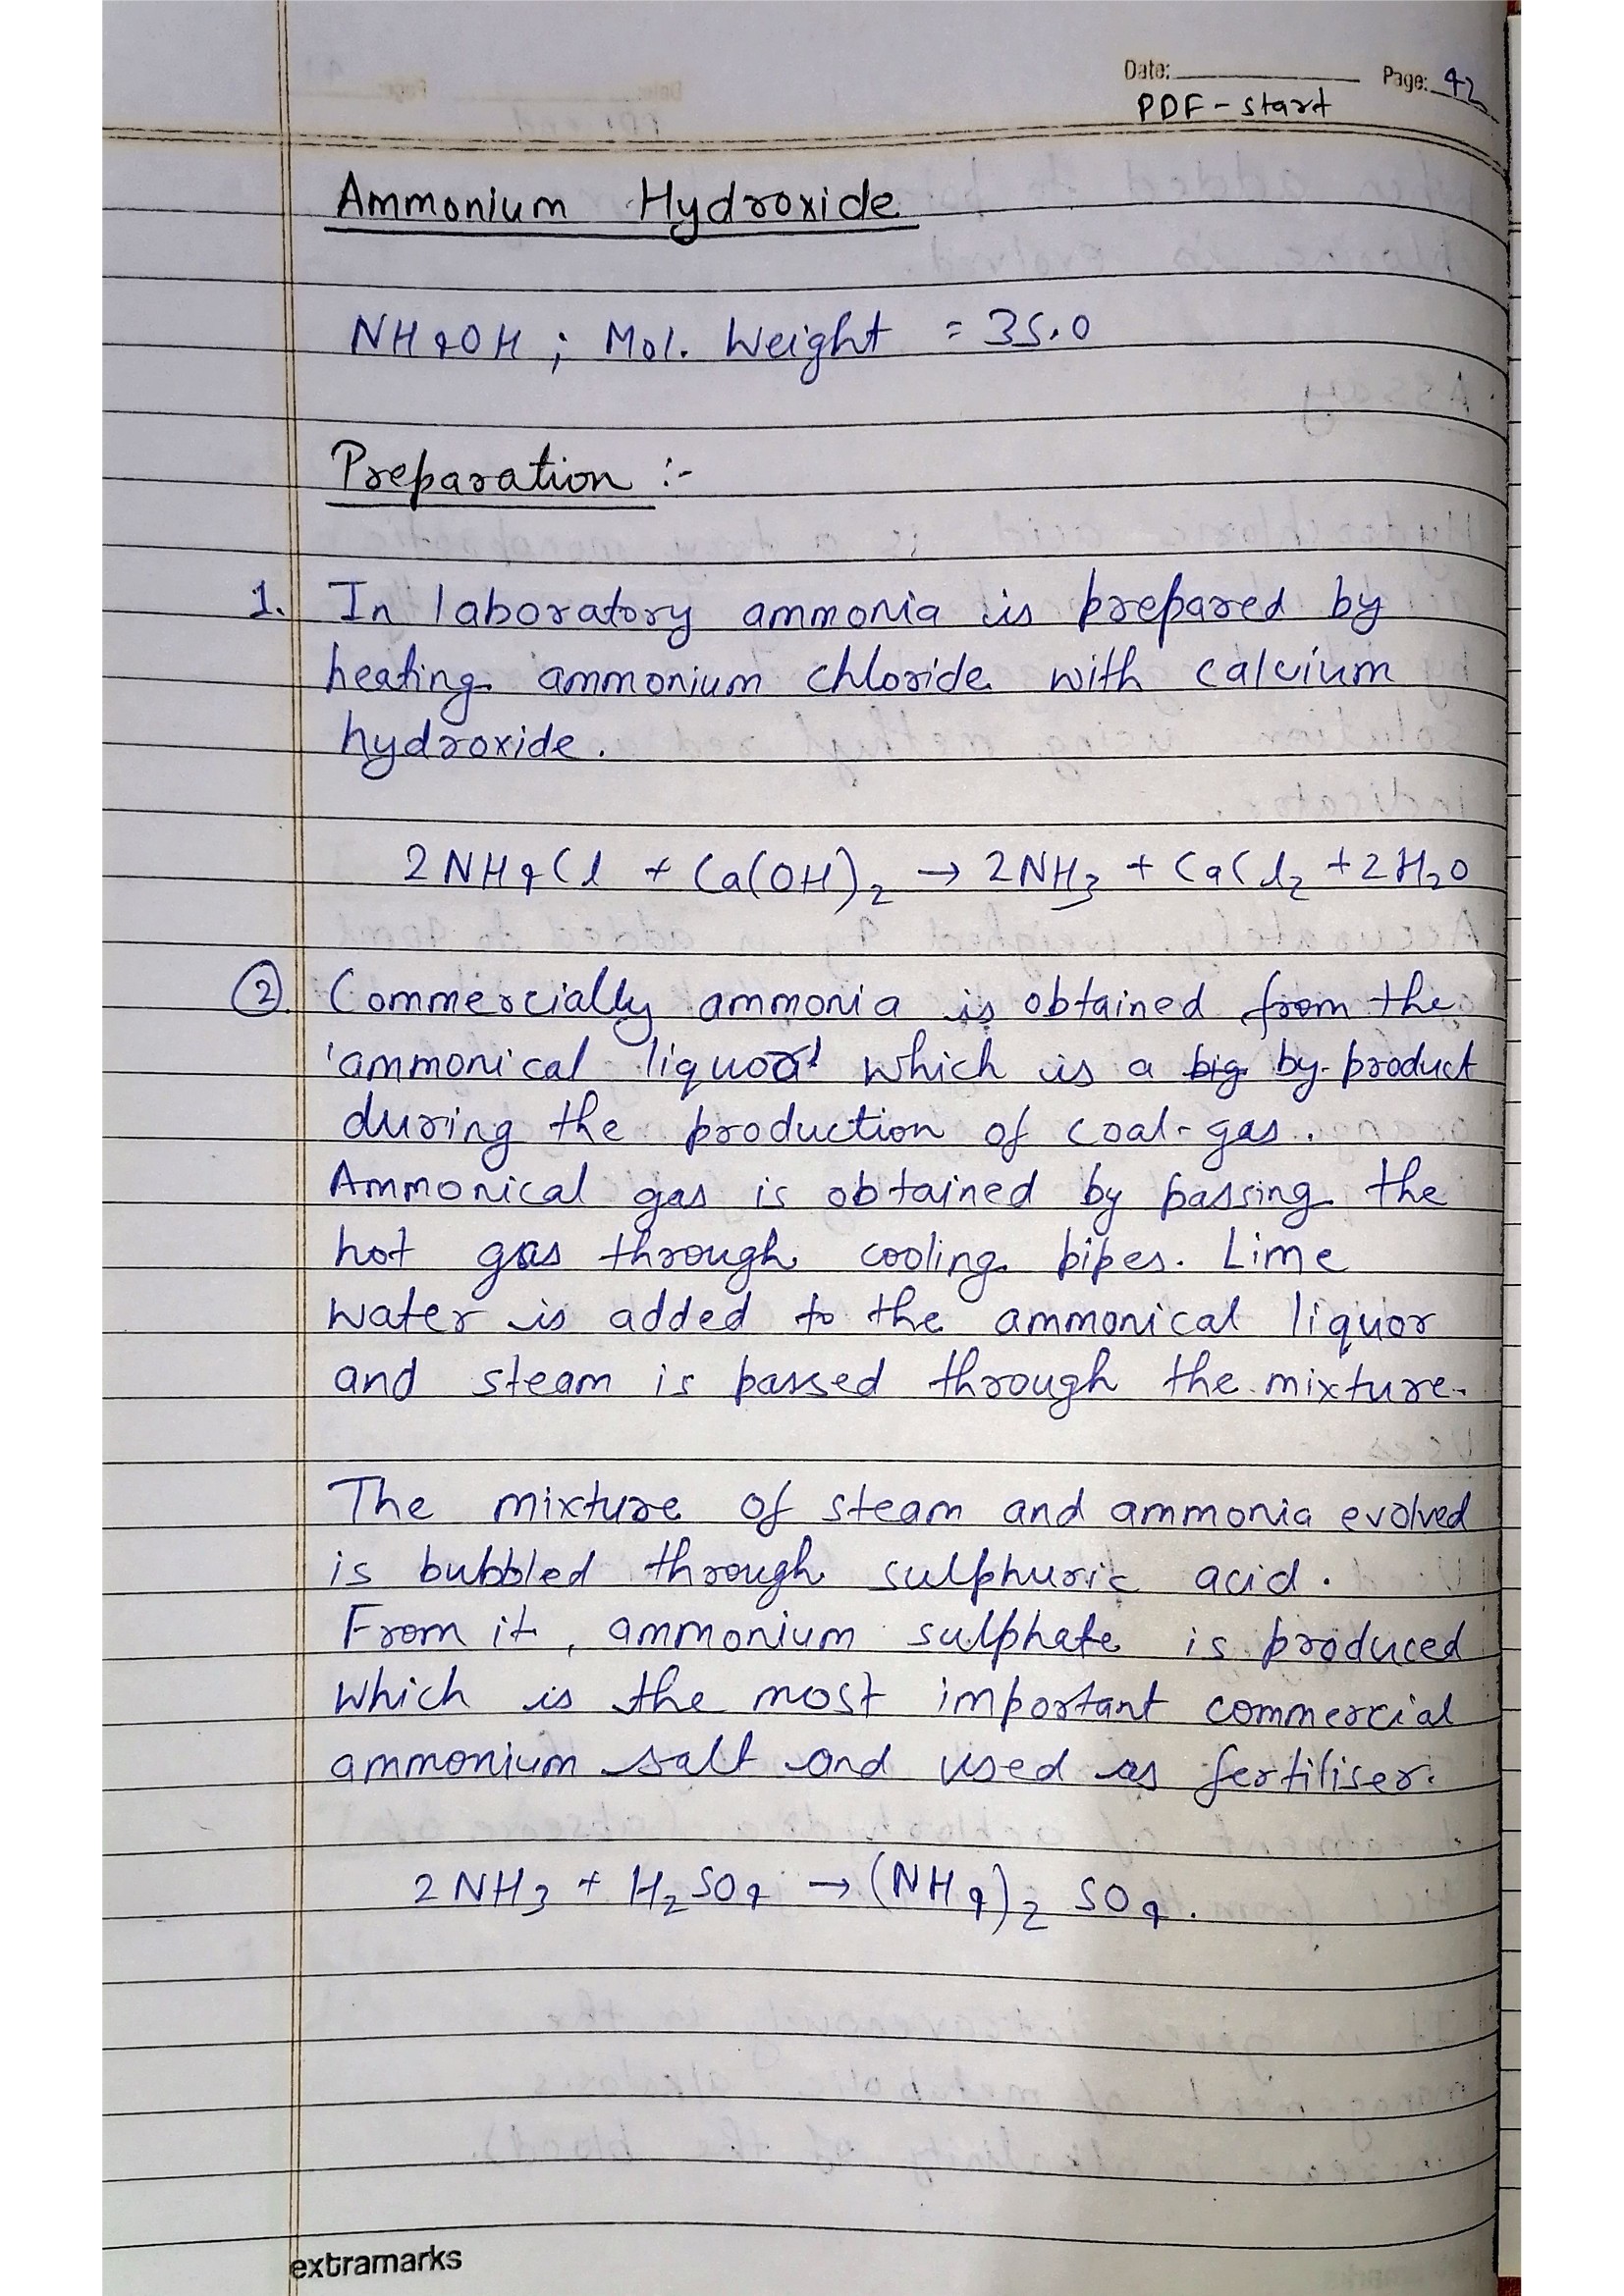 Date: Page: 42
PDF - start
Ammonium Hydroxide
NH4OH ; Mol. Weight = 35.0
Preparation :-
1. In laboratory ammonia is prepared by
heating ammonium chloride with calcium
hydroxide.
2NH4Cl + Ca(OH)2 → 2NH3 + CaCl2 + 2H2O
2. Commercially ammonia is obtained from the
'ammonical liquor' which is a big by-product
during the production of coal-gas.
Ammonical gas is obtained by passing the
hot gas through cooling pipes. Lime
water is added to the ammonical liquor
and steam is passed through the mixture.
The mixture of steam and ammonia evolved
is bubbled through sulphuric acid.
From it, ammonium sulphate is produced
which is the most important commercial
ammonium salt and used as fertiliser.
2NH3 + H2SO4 → (NH4)2 SO4.
extramarks